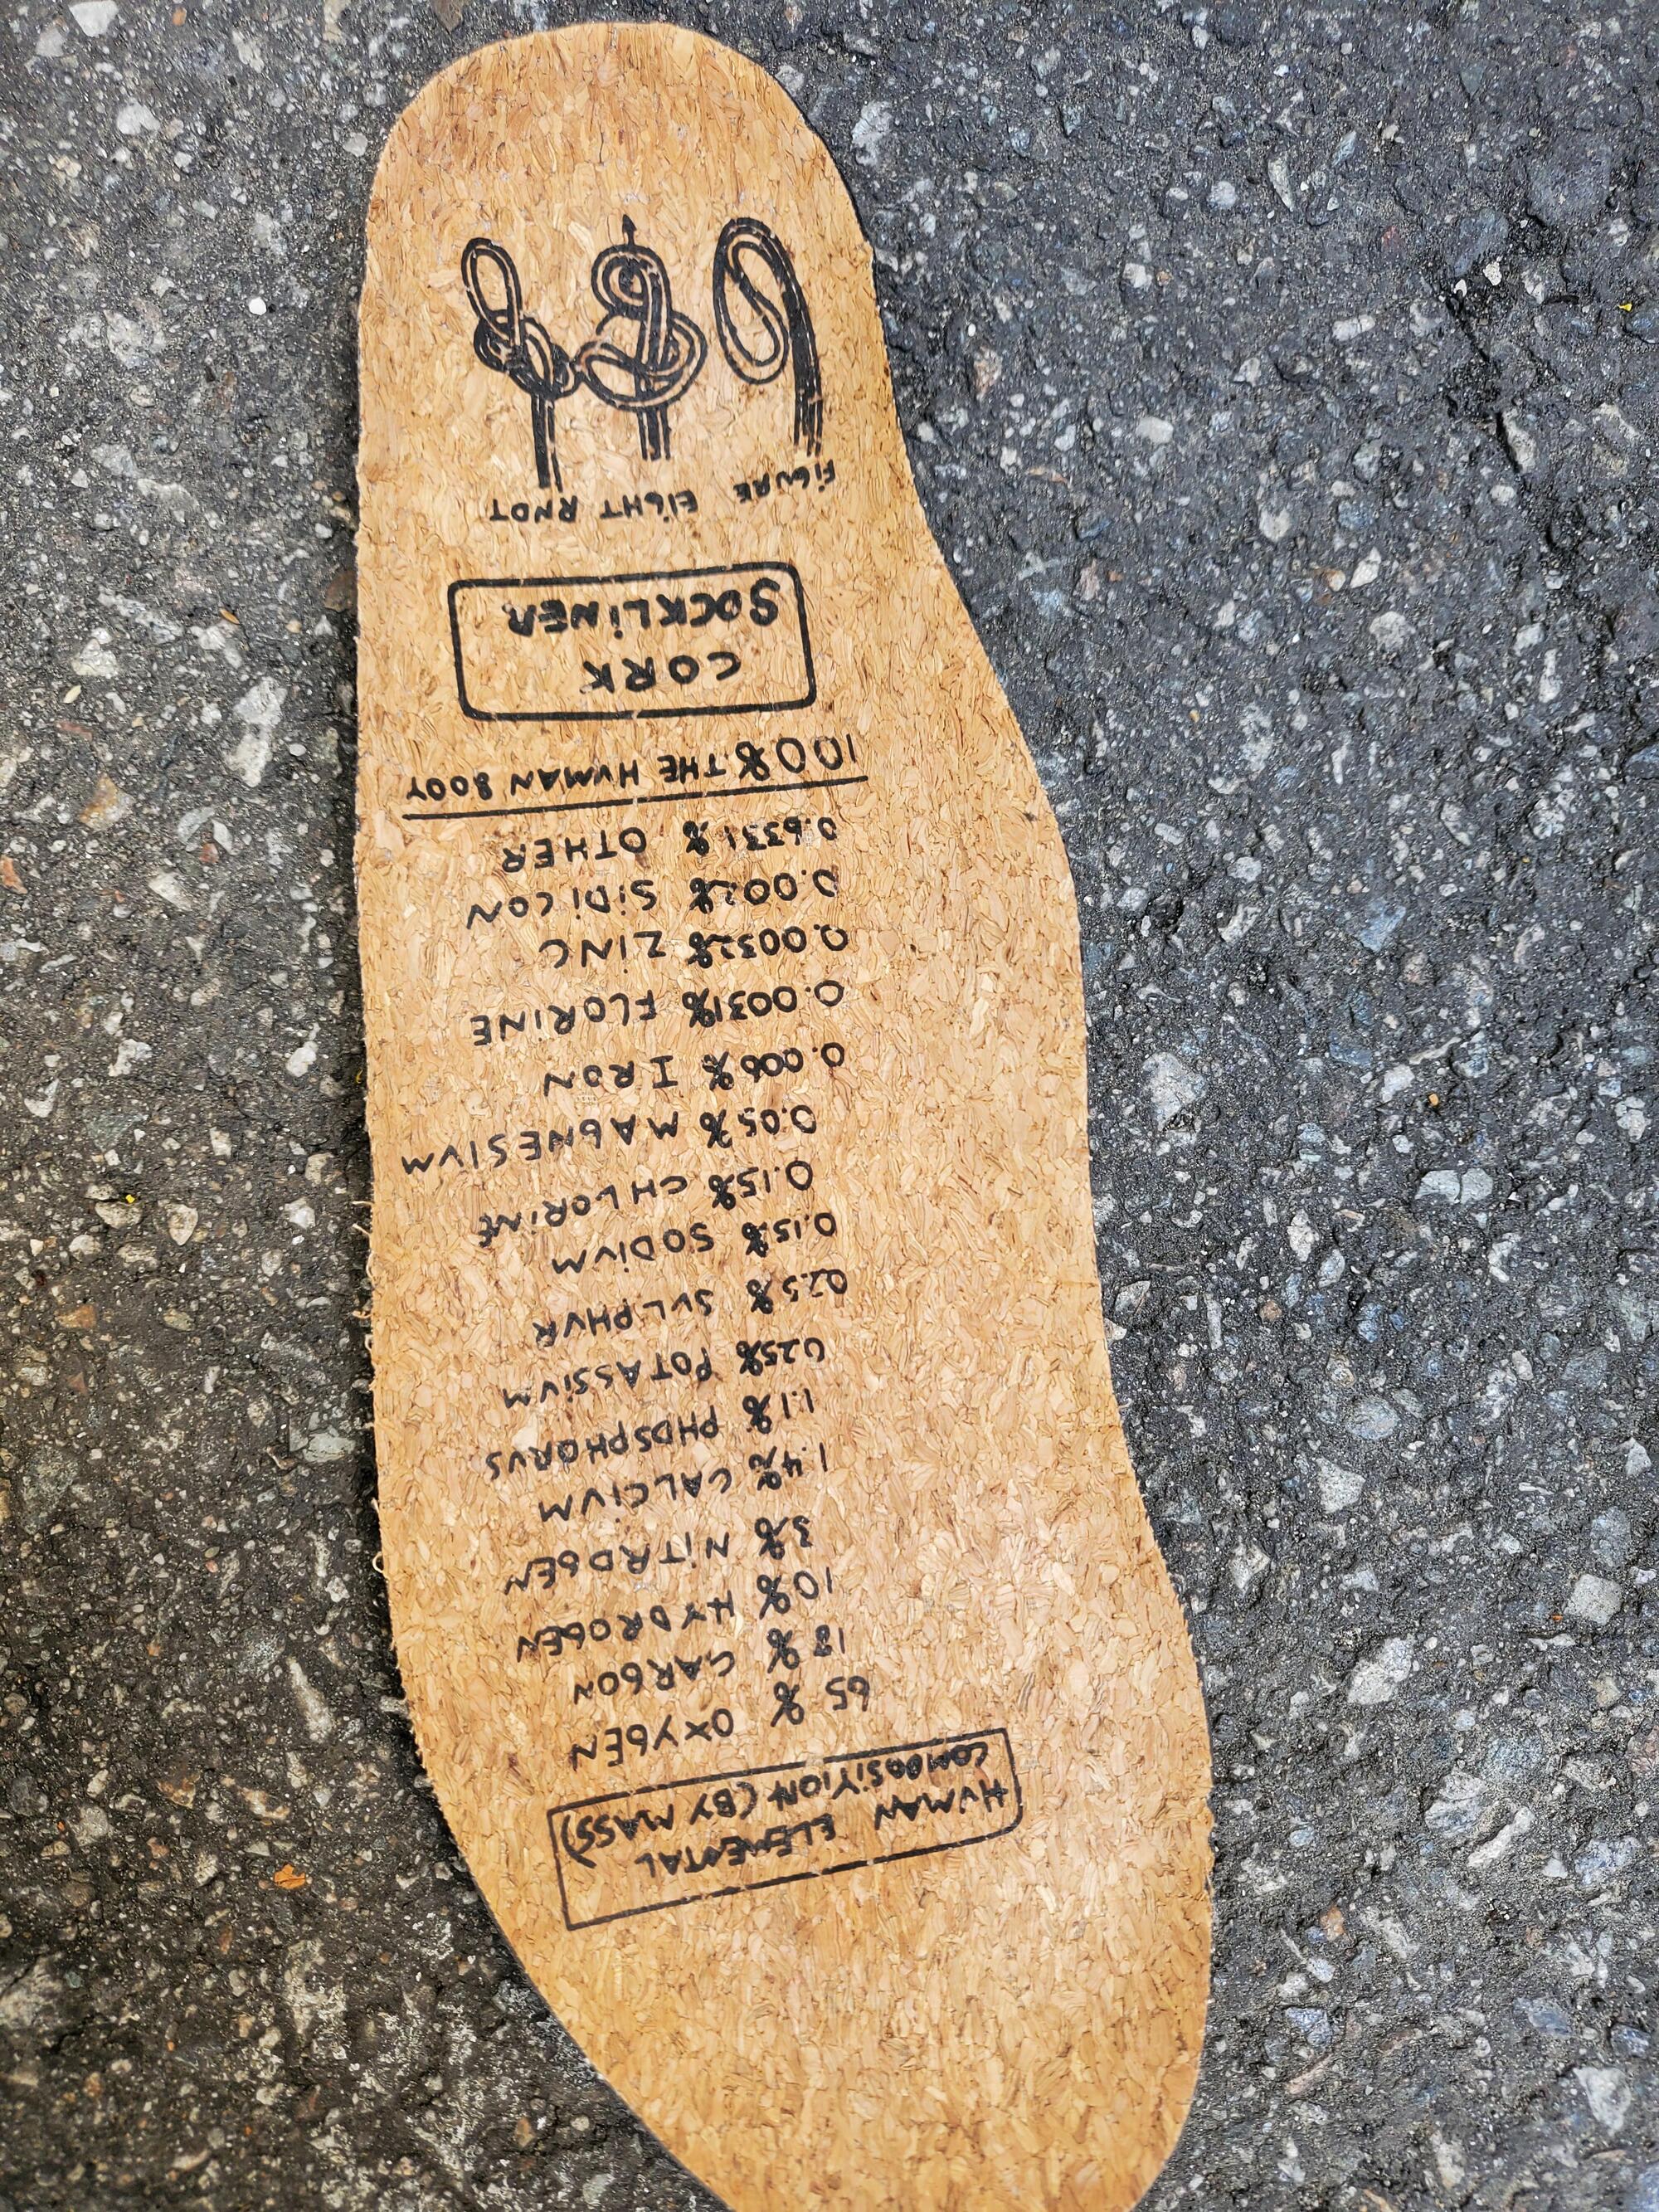 HUMAN ELEMENTAL
COMPOSITION (BY MASS)
65 % OXYGEN
18% CARBON
10% HYDROGEN
3% NITROGEN
1.4% CALCIUM
1.1% PHOSPHORUS
0.25% POTASSIUM
0.25% SULPHUR
0.15% SODIUM
0.15% CHLORINE
0.05% MAGNESIUM
0.006% IRON
0.0031% FLORINE
0.0032% ZINC
0.002% SIDICON
0.6331% OTHER
100% THE HUMAN BODY
CORK
SOCKLINER
FIGURE EIGHT RNOT